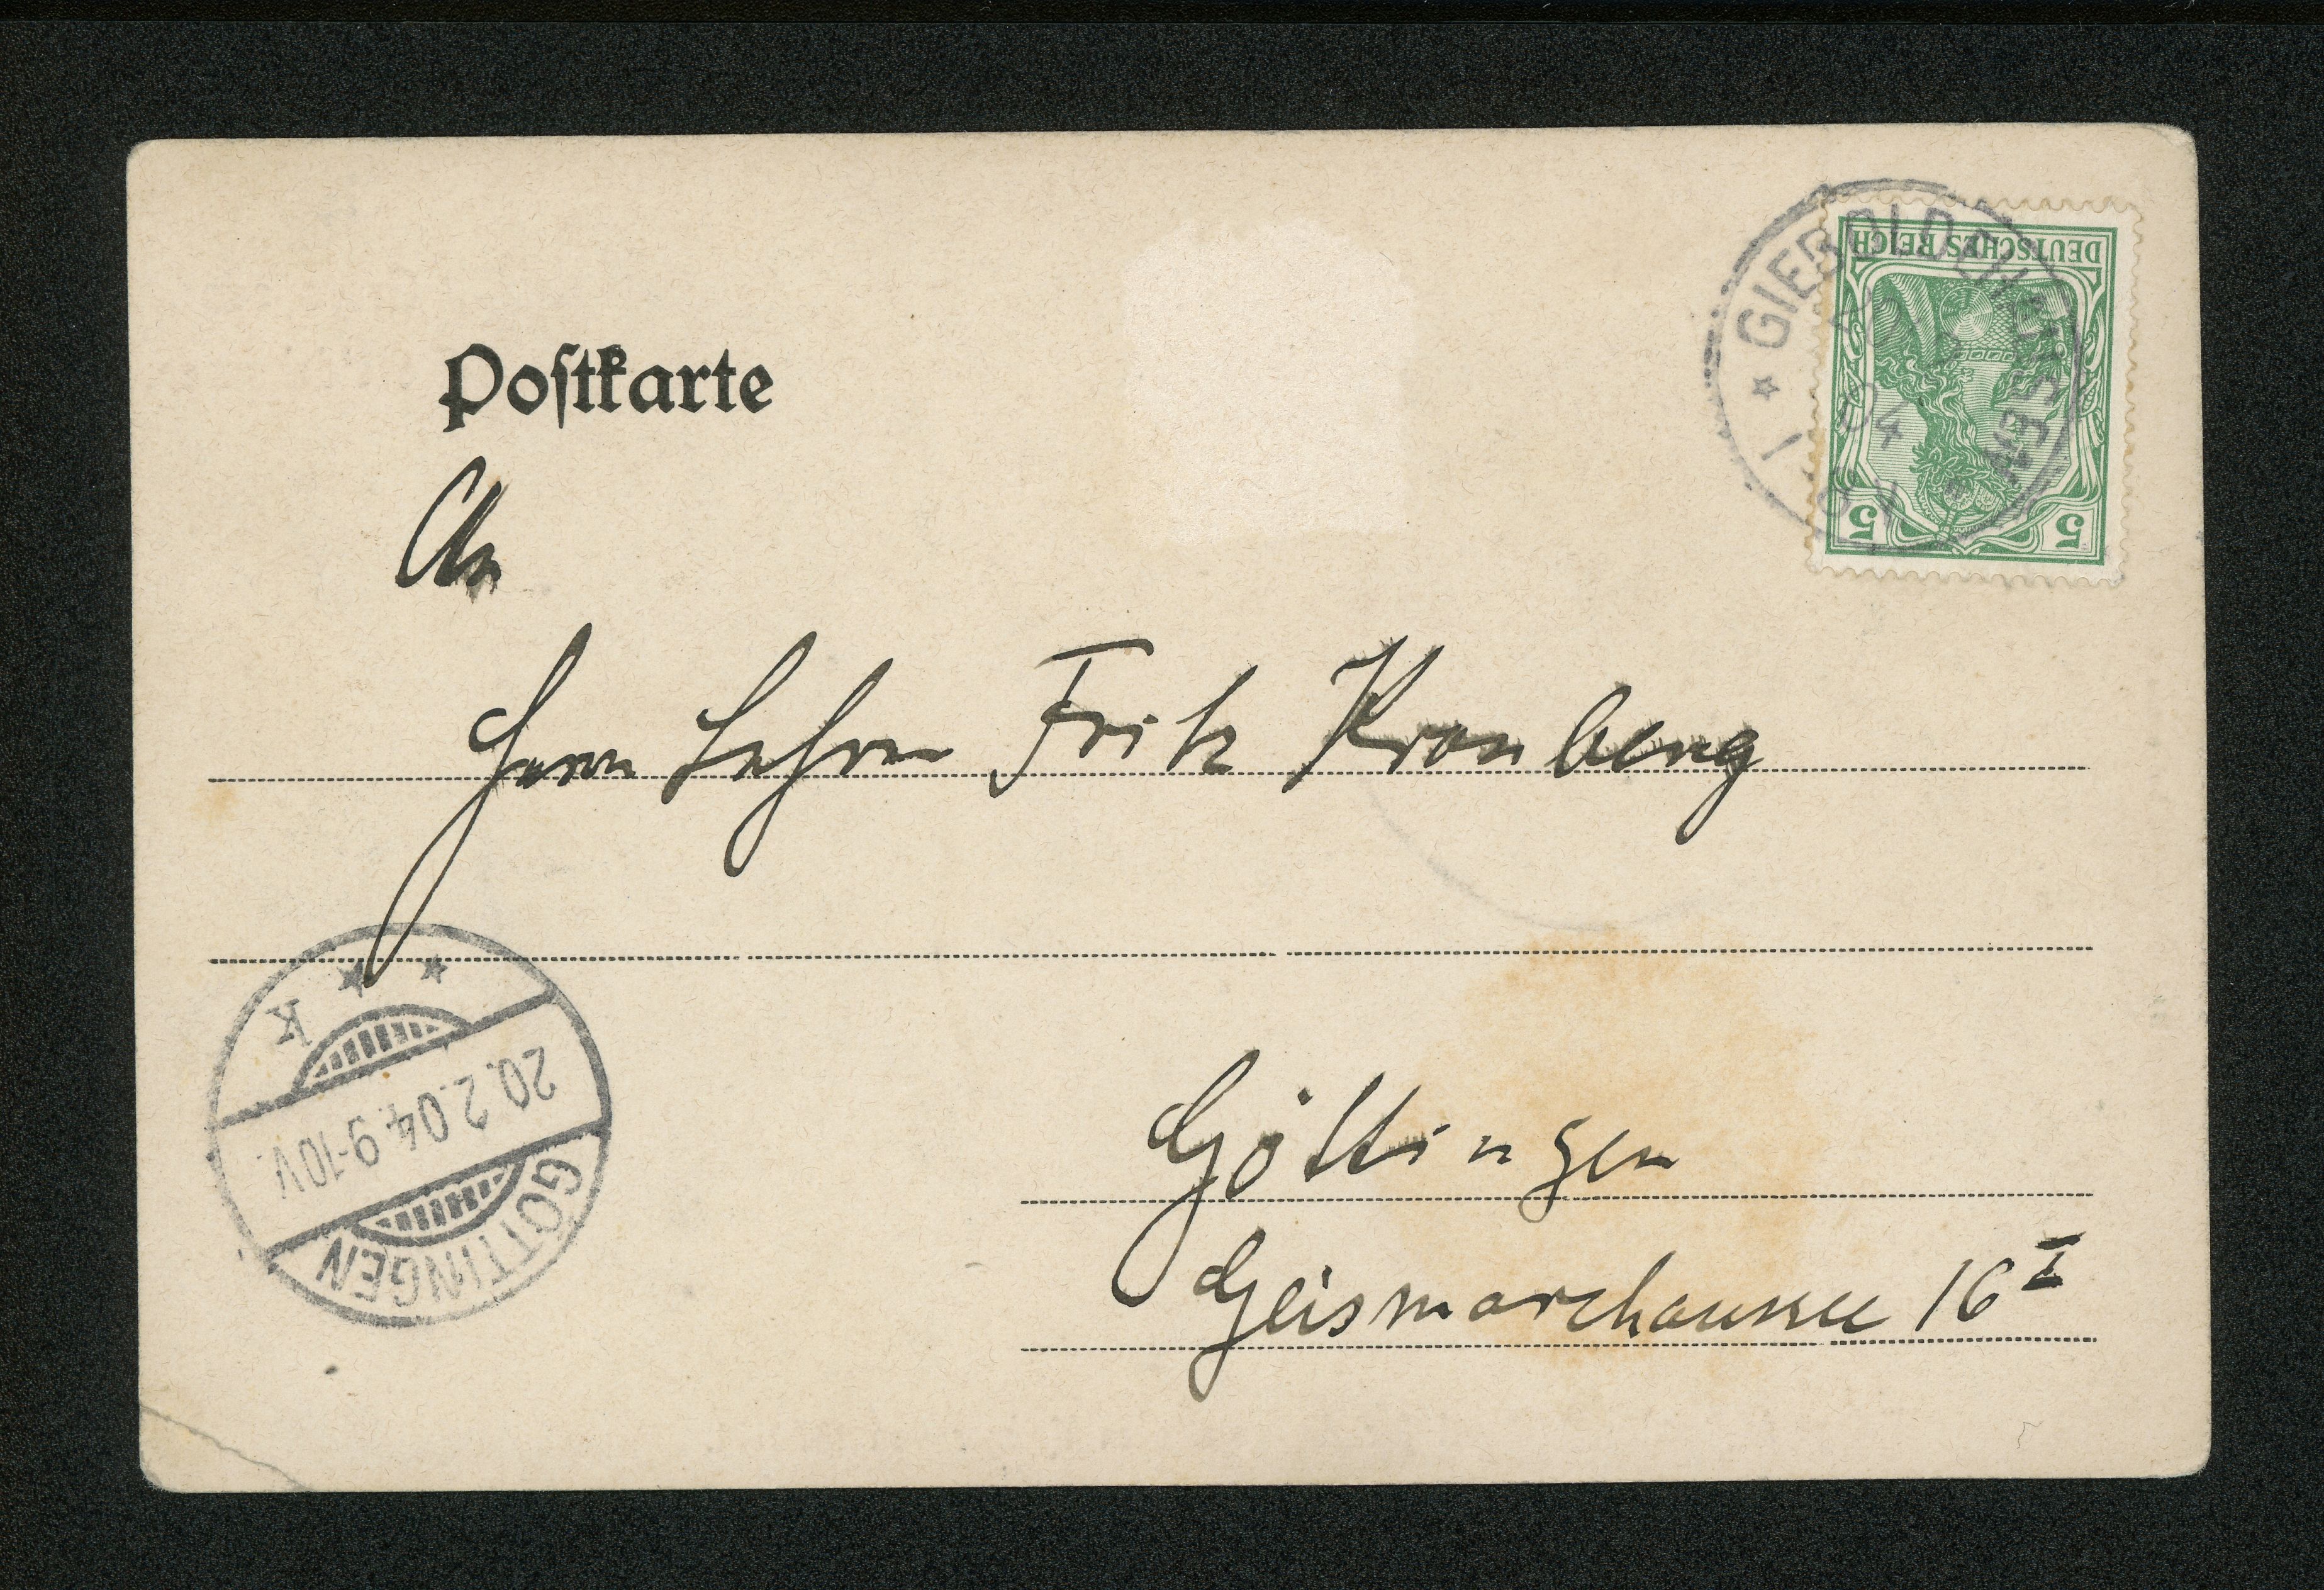 DEUTSCHES REICH
5 5
* GIEBOLDEHAUSEN *
04
Postkarte
An
Herrn Lehrer Fritz Kronberg
K
20.2.04.9-10V.
GÖTTINGEN
Göttingen
Geismarchaussee 16 I